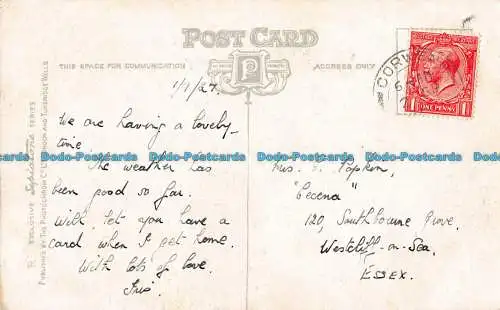 POST CARD
THIS SPACE FOR COMMUNICATION
ADDRESS ONLY
P
EXCLUSIVE Sepiatone SERIES
PUBLISHED BY THE PHOTOCHROM CO. LTD LONDON AND TUNBRIDGE WELLS
CORW
ONE PENNY
1/9/27.
We are having a lovely
time. The weather has
been good so far.
Will let you have a
card when I get home.
With lots of love.
Iris.
Mrs. Popkin,
"Cecena"
120, Southbourne Grove,
Westcliff-on-Sea,
ESSEX.
Dodo-Postcards Dodo-Postcards Dodo-Postcards Dodo-Postcards